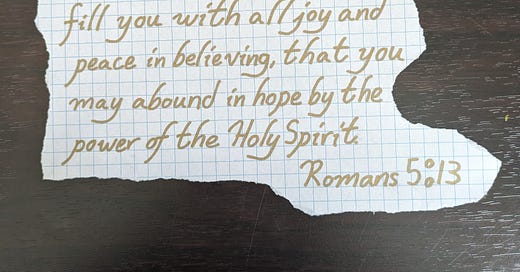 fill you with all joy and
peace in believing, that you
may abound in hope by the
power of the Holy Spirit.
Romans 5:13